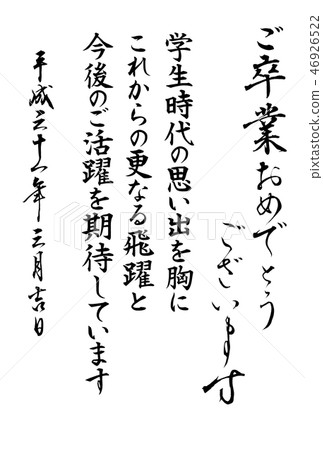 ご卒業おめでとう
ございます
学生時代の思い出を胸に
これからの更なる飛躍と
今後のご活躍を期待しています
平成三十一年三月吉日
PIXTA
46926522